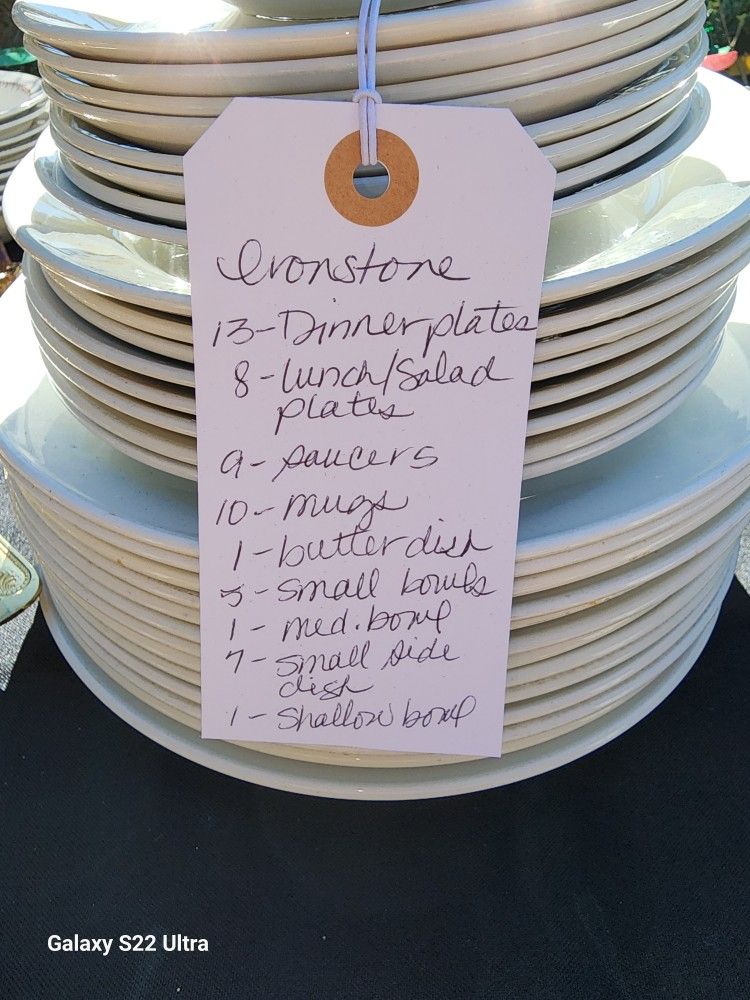 Ironstone
13-Dinner plates
8-lunch/Salad
plates
9-saucers
10-mugs
1-butter dish
5-small bowls
1-med. bowl
7-small side
dish
1-shallow bowl
Galaxy S22 Ultra